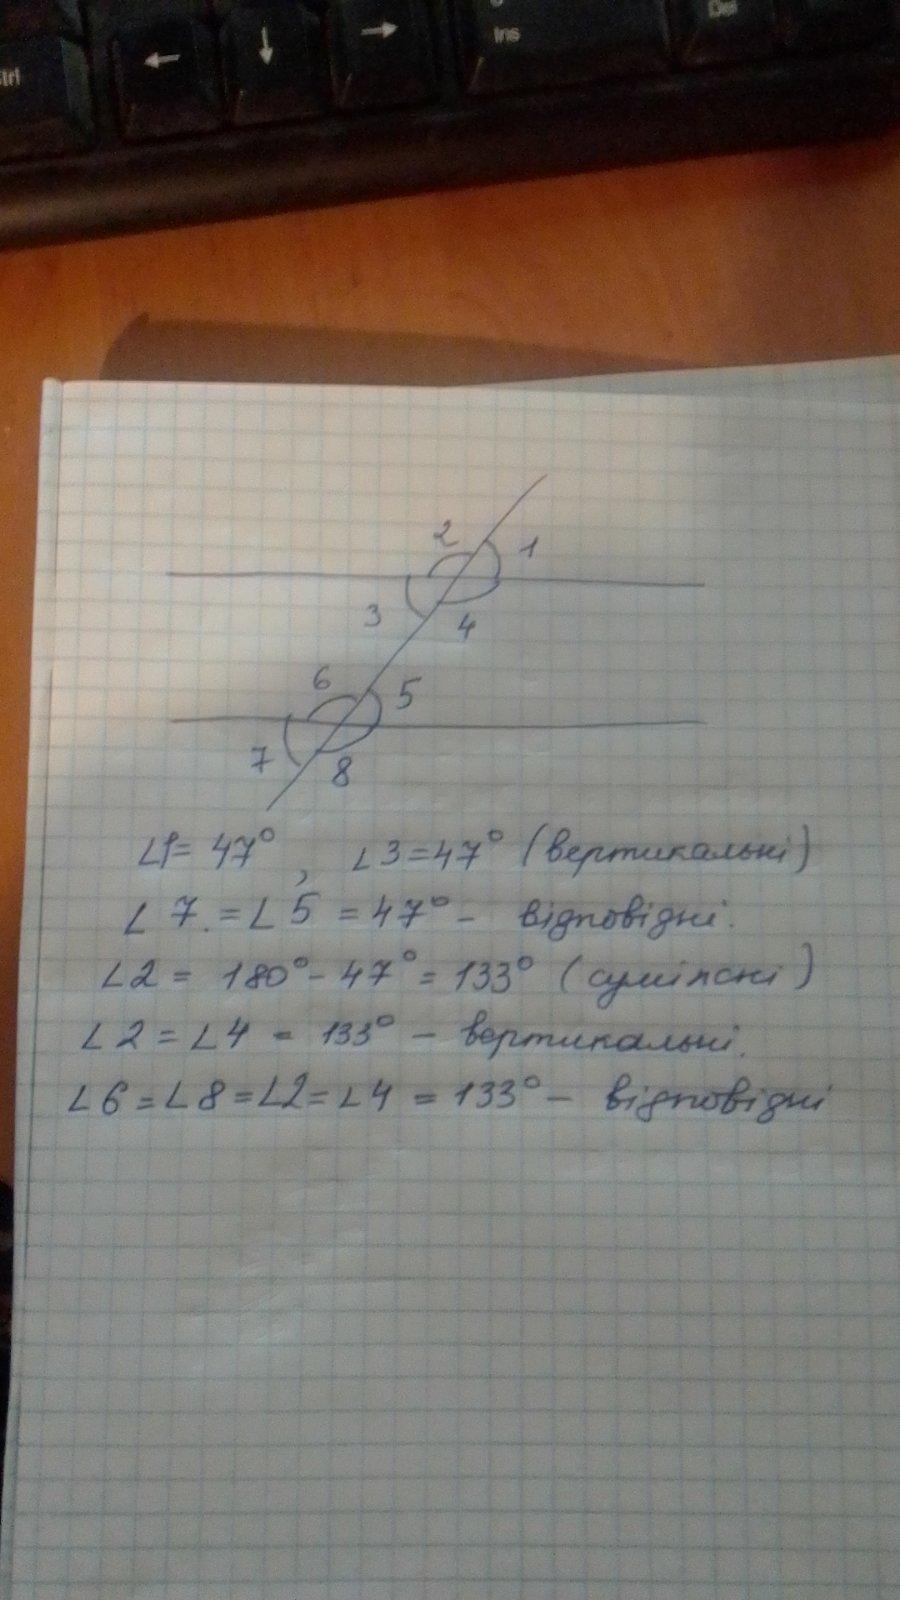 trl
← ↓ →
Ins
Del
2 1
3 4
6 5
7 8
∠1 = 47°, ∠3 = 47° (вертикальні)
∠7. = ∠5 = 47° - відповідні.
∠2 = 180° - 47° = 133° (суміжні)
∠2 = ∠4 = 133° - вертикальні.
∠6 = ∠8 = ∠2 = ∠4 = 133° - відповідні